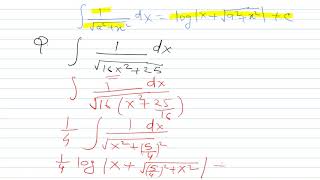 ∫ 1/√(a²+x²) dx = log|x + √(a²+x²)| + c
Q ∫ 1/√(16x²+25) dx
∫ 1/√(16(x²+25/16)) dx
1/4 ∫ 1/√(x²+(5/4)²) dx
1/4 log|x + √((5/4)²+x²)|